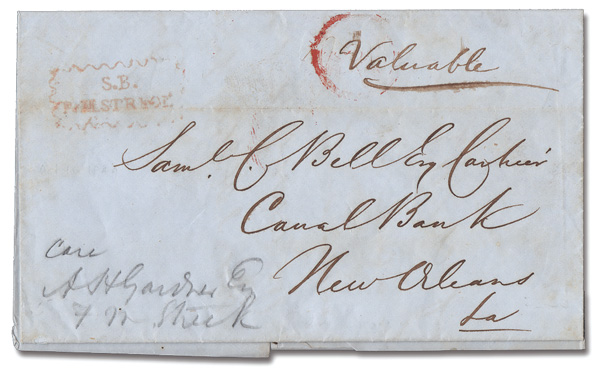 Valuable
S.B.
Saml. C. Bell Esq Cashier
Canal Bank
New Orleans
La
care
A H Gardner Esq